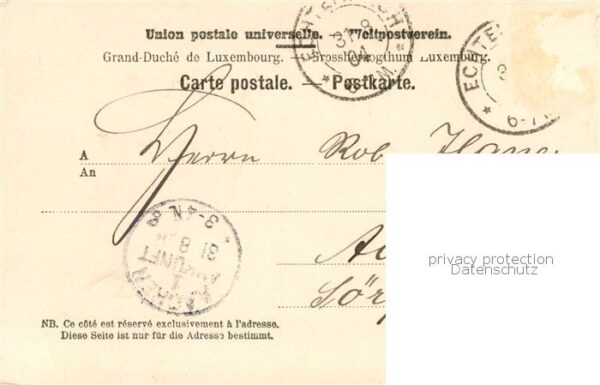 Union postale universelle. — Weltpostverein.
Grand-Duché de Luxembourg. — Grossherzogthum Luxemburg.
Carte postale. — Postkarte.
ECHTERNACH
31 8
04
ECHTE
6-7
A
An
Herrn Rob
3-4N
31 8
ANKUNFT
1
AACHEN
privacy protection
Datenschutz
NB. Ce côté est réservé exclusivement à l'adresse.
Diese Seite ist nur für die Adresse bestimmt.